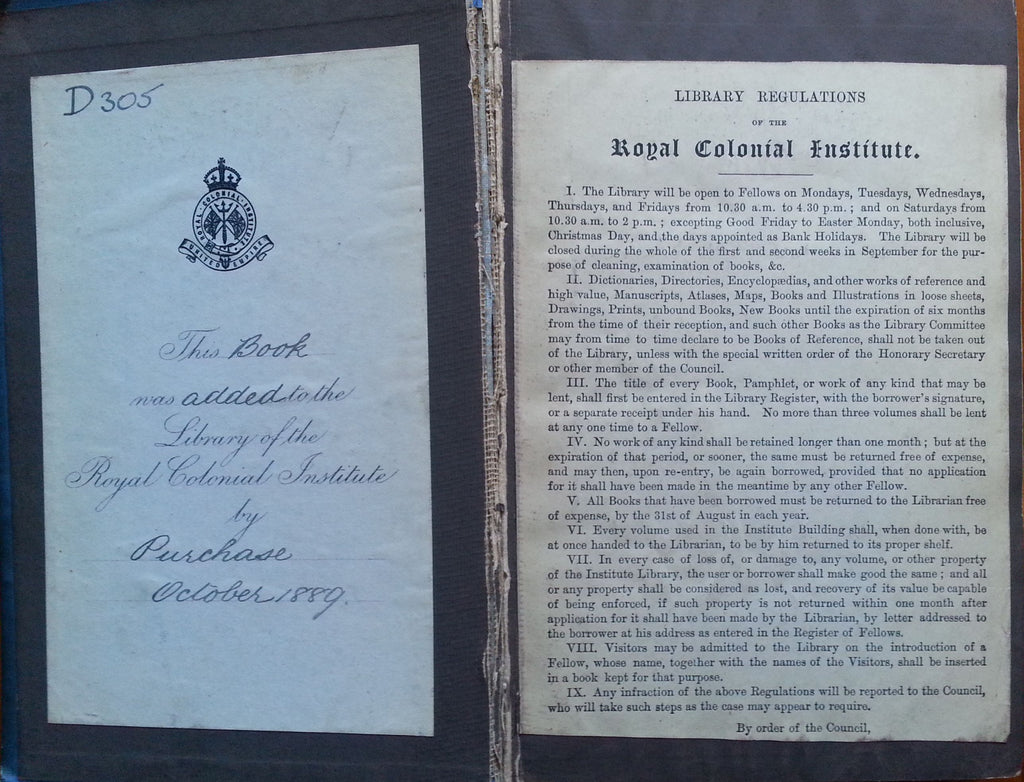 D 305
ROYAL COLONIAL INSTITUTE
UNITED EMPIRE
This Book
was added to the
Library of the
Royal Colonial Institute
by
Purchase
October 1889.
LIBRARY REGULATIONS
OF THE
Royal Colonial Institute.
I. The Library will be open to Fellows on Mondays, Tuesdays, Wednesdays,
Thursdays, and Fridays from 10.30 a.m. to 4.30 p.m.; and on Saturdays from
10.30 a.m. to 2 p.m.; excepting Good Friday to Easter Monday, both inclusive,
Christmas Day, and the days appointed as Bank Holidays. The Library will be
closed during the whole of the first and second weeks in September for the pur-
pose of cleaning, examination of books, &c.
II. Dictionaries, Directories, Encyclopædias, and other works of reference and
high value, Manuscripts, Atlases, Maps, Books and Illustrations in loose sheets,
Drawings, Prints, unbound Books, New Books until the expiration of six months
from the time of their reception, and such other Books as the Library Committee
may from time to time declare to be Books of Reference, shall not be taken out
of the Library, unless with the special written order of the Honorary Secretary
or other member of the Council.
III. The title of every Book, Pamphlet, or work of any kind that may be
lent, shall first be entered in the Library Register, with the borrower's signature,
or a separate receipt under his hand. No more than three volumes shall be lent
at any one time to a Fellow.
IV. No work of any kind shall be retained longer than one month; but at the
expiration of that period, or sooner, the same must be returned free of expense,
and may then, upon re-entry, be again borrowed, provided that no application
for it shall have been made in the meantime by any other Fellow.
V. All Books that have been borrowed must be returned to the Librarian free
of expense, by the 31st of August in each year.
VI. Every volume used in the Institute Building shall, when done with, be
at once handed to the Librarian, to be by him returned to its proper shelf.
VII. In every case of loss of, or damage to, any volume, or other property
of the Institute Library, the user or borrower shall make good the same; and all
or any property shall be considered as lost, and recovery of its value be capable
of being enforced, if such property is not returned within one month after
application for it shall have been made by the Librarian, by letter addressed to
the borrower at his address as entered in the Register of Fellows.
VIII. Visitors may be admitted to the Library on the introduction of a
Fellow, whose name, together with the names of the Visitors, shall be inserted
in a book kept for that purpose.
IX. Any infraction of the above Regulations will be reported to the Council,
who will take such steps as the case may appear to require.
By order of the Council,